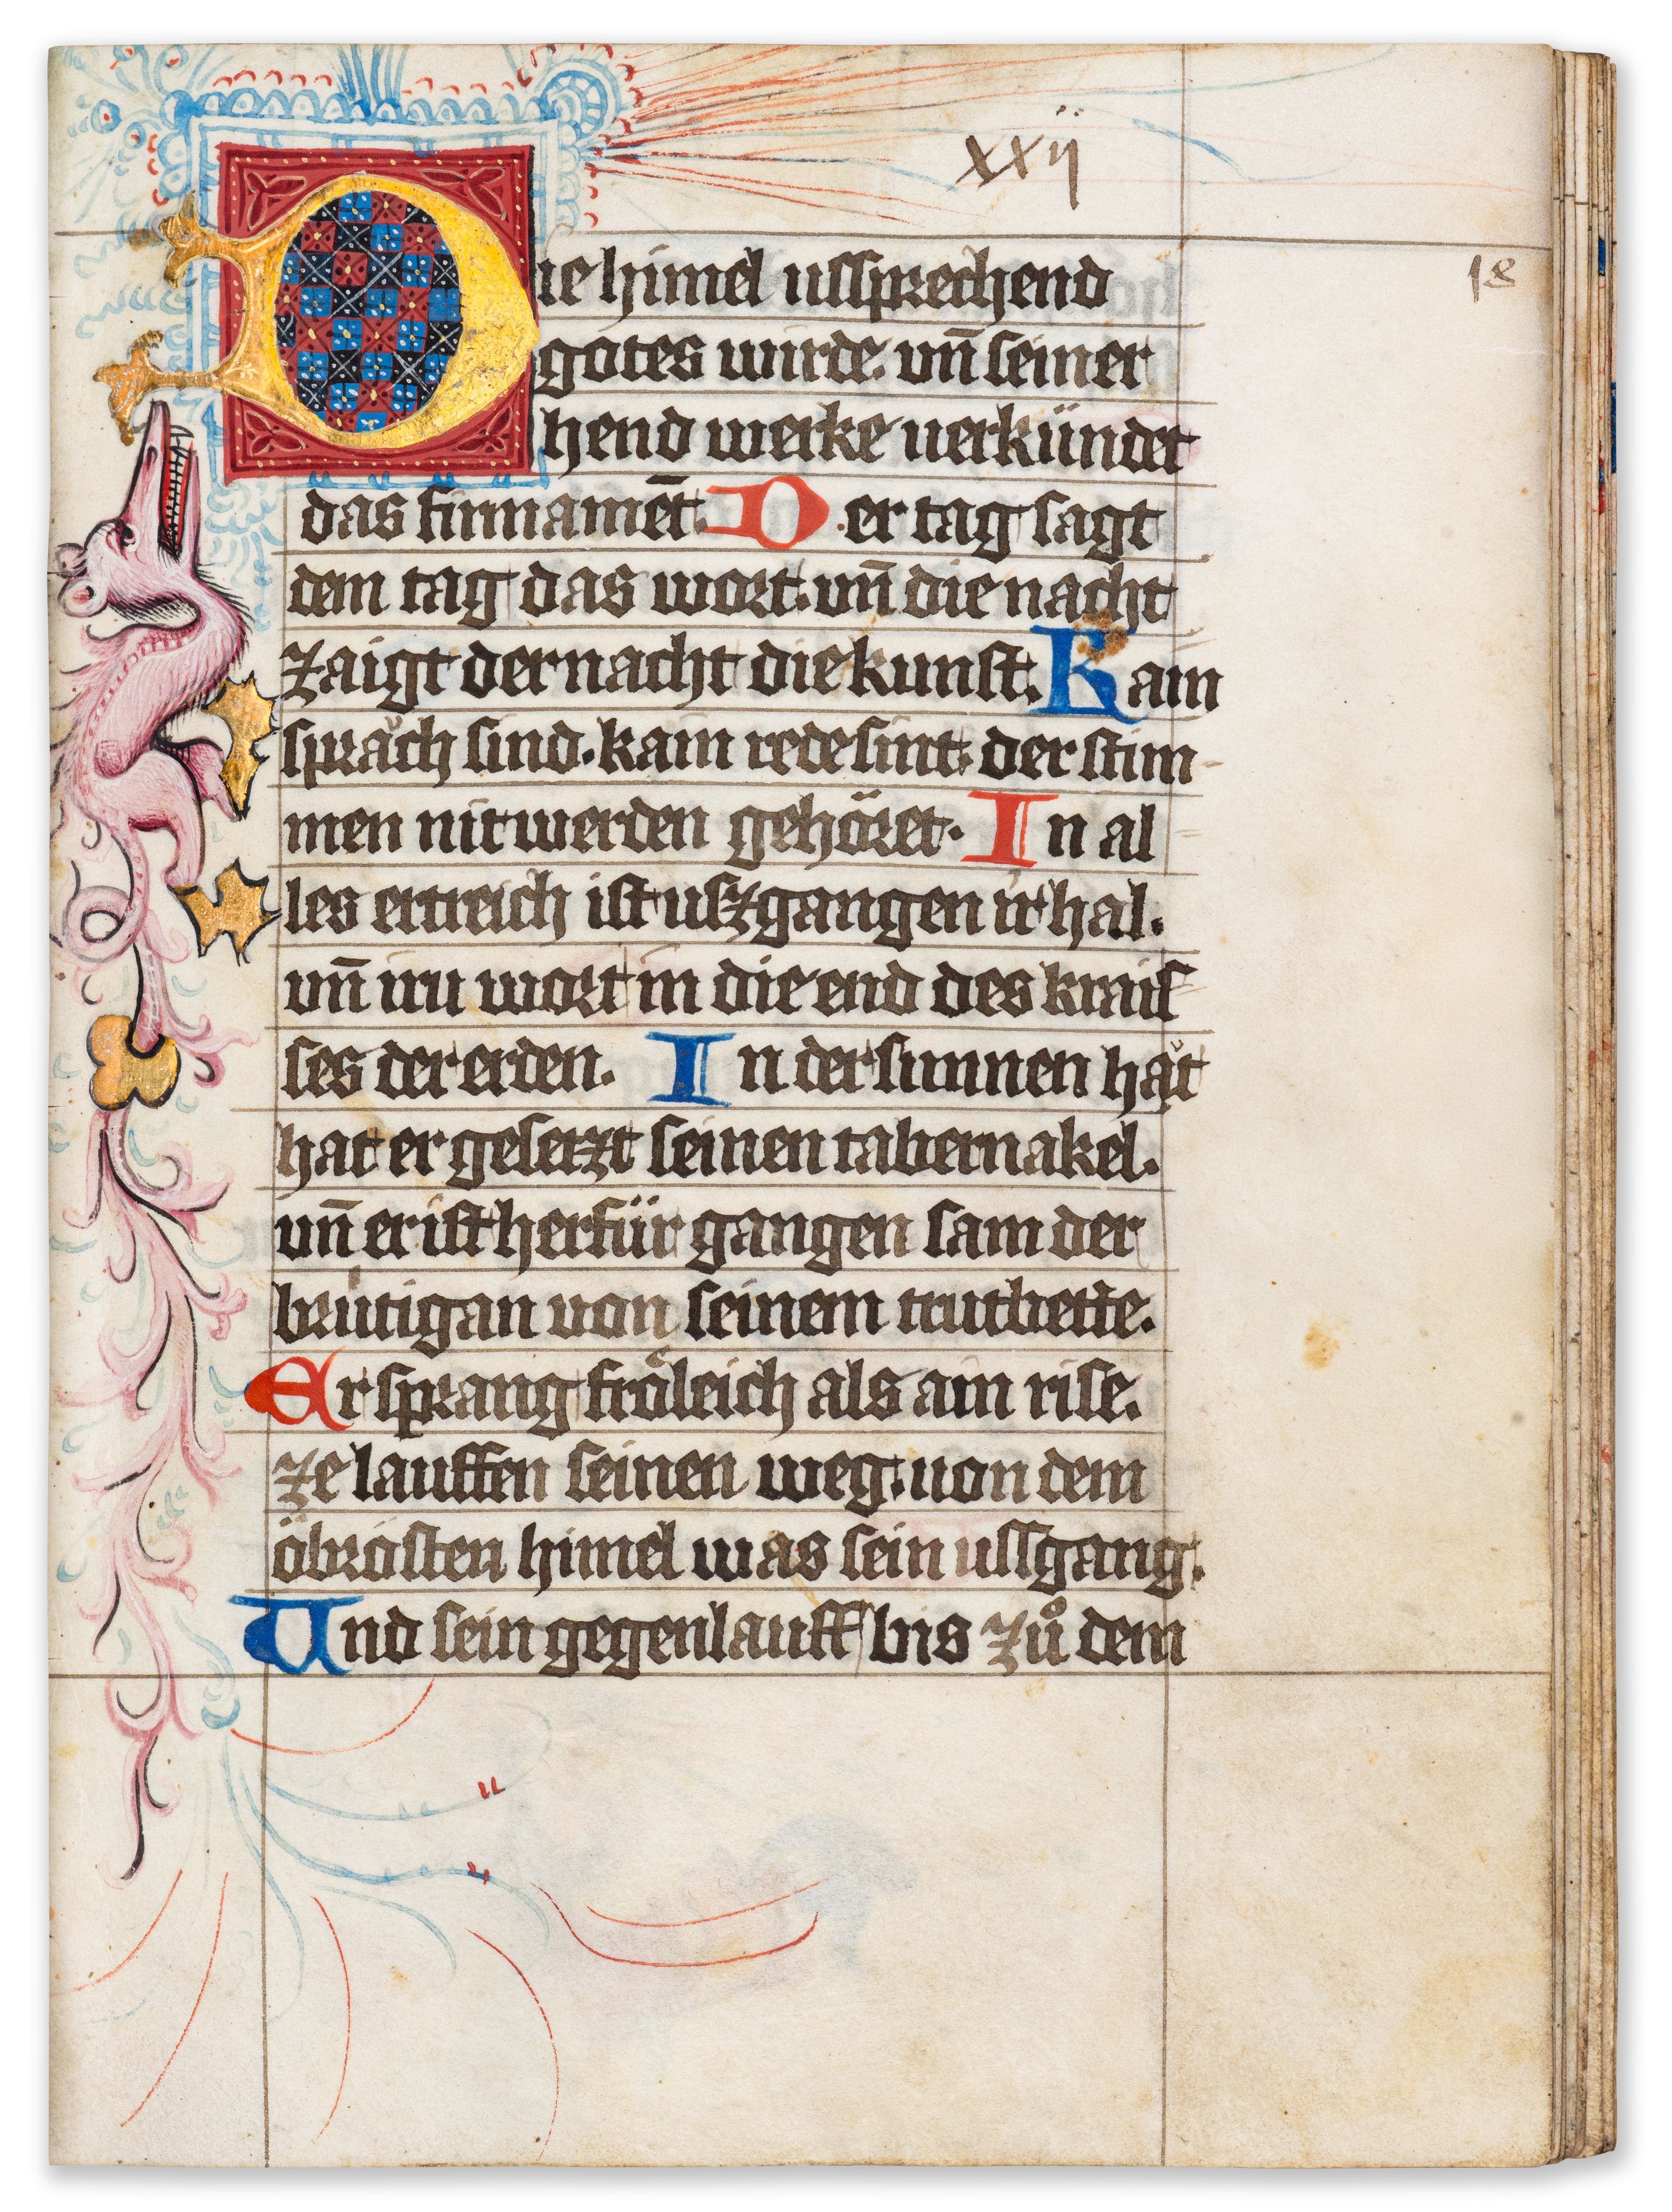 xxij
18
Die himel ussprechend
gotes wirde. vn̄ seiner
hend werke uerkündet
das firmamēt. Der tag sagt
dem tag das wort. vn̄ die nacht
zaigt der nacht die kunst. Kain
spraͤch sind. kain rede sint. der stim-
men nit werden gehöret. In al
les ertreich ist uszgangen ir hal.
vn̄ iru wort in die end des krais-
ses der erden. In der sunnen haͤt
hat er gesetzt seinen tabernakel.
vn̄ er ist herfür gangen sam der
brutigan von seinem trutbette.
Er sprang froͤleich als ain rise.
ze lauffen seinen weg. uon dem
öbrosten himel was sein ussgang.
Und sein gegenlauff bis zuͦ dem